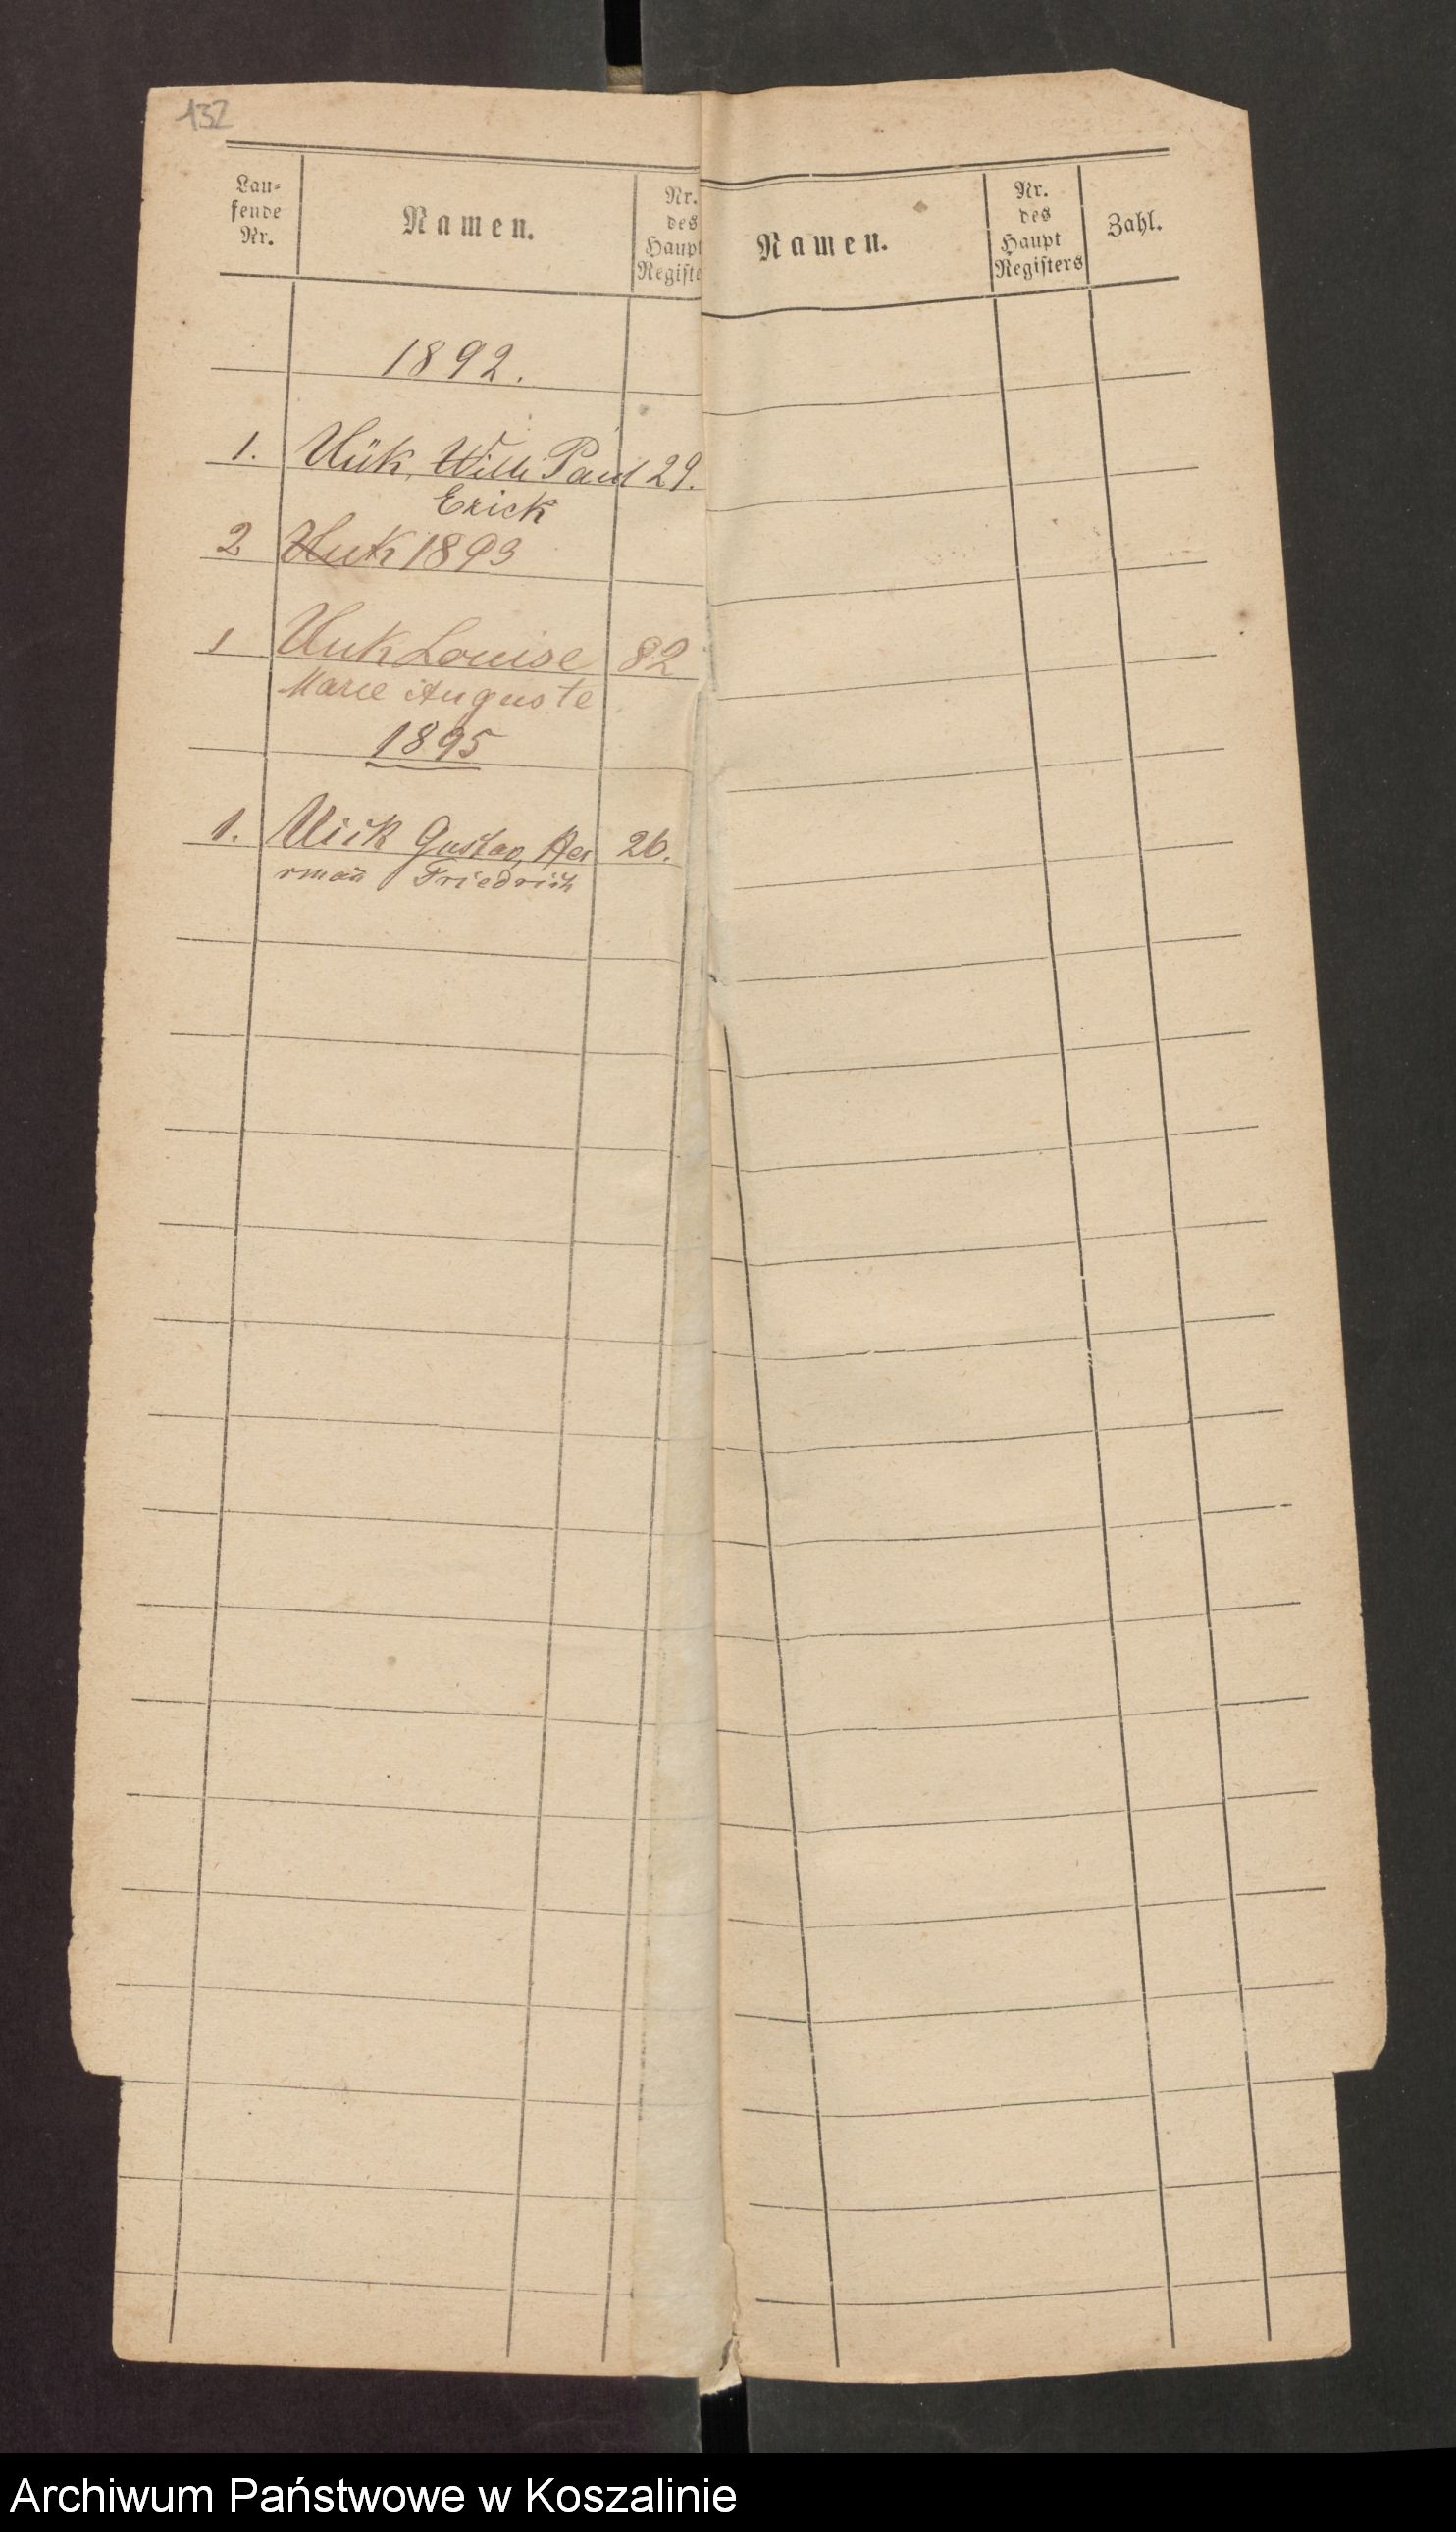 132
Lau-
fende
Nr.
Namen.
Nr.
des
Haupt
Registe
Namen.
Nr.
des
Haupt
Registers
Zahl.
1892.
1. Uük, Willi Paul 29.
Erick
2 Uuk 1893
1 Uuk Louise 82
Marie Auguste
1895
1. Uük Gustav, Her 26.
rmañ Friedrich
Archiwum Państwowe w Koszalinie